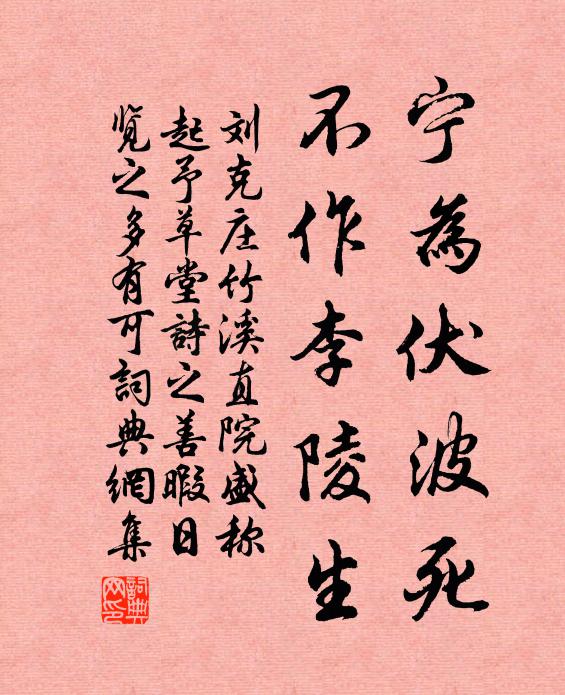 宁為伏波死
不作李陵生
刘克庄竹溪直院盛称
起予草堂詩之善暇日
览之多有可詞典網集
詞典
网印